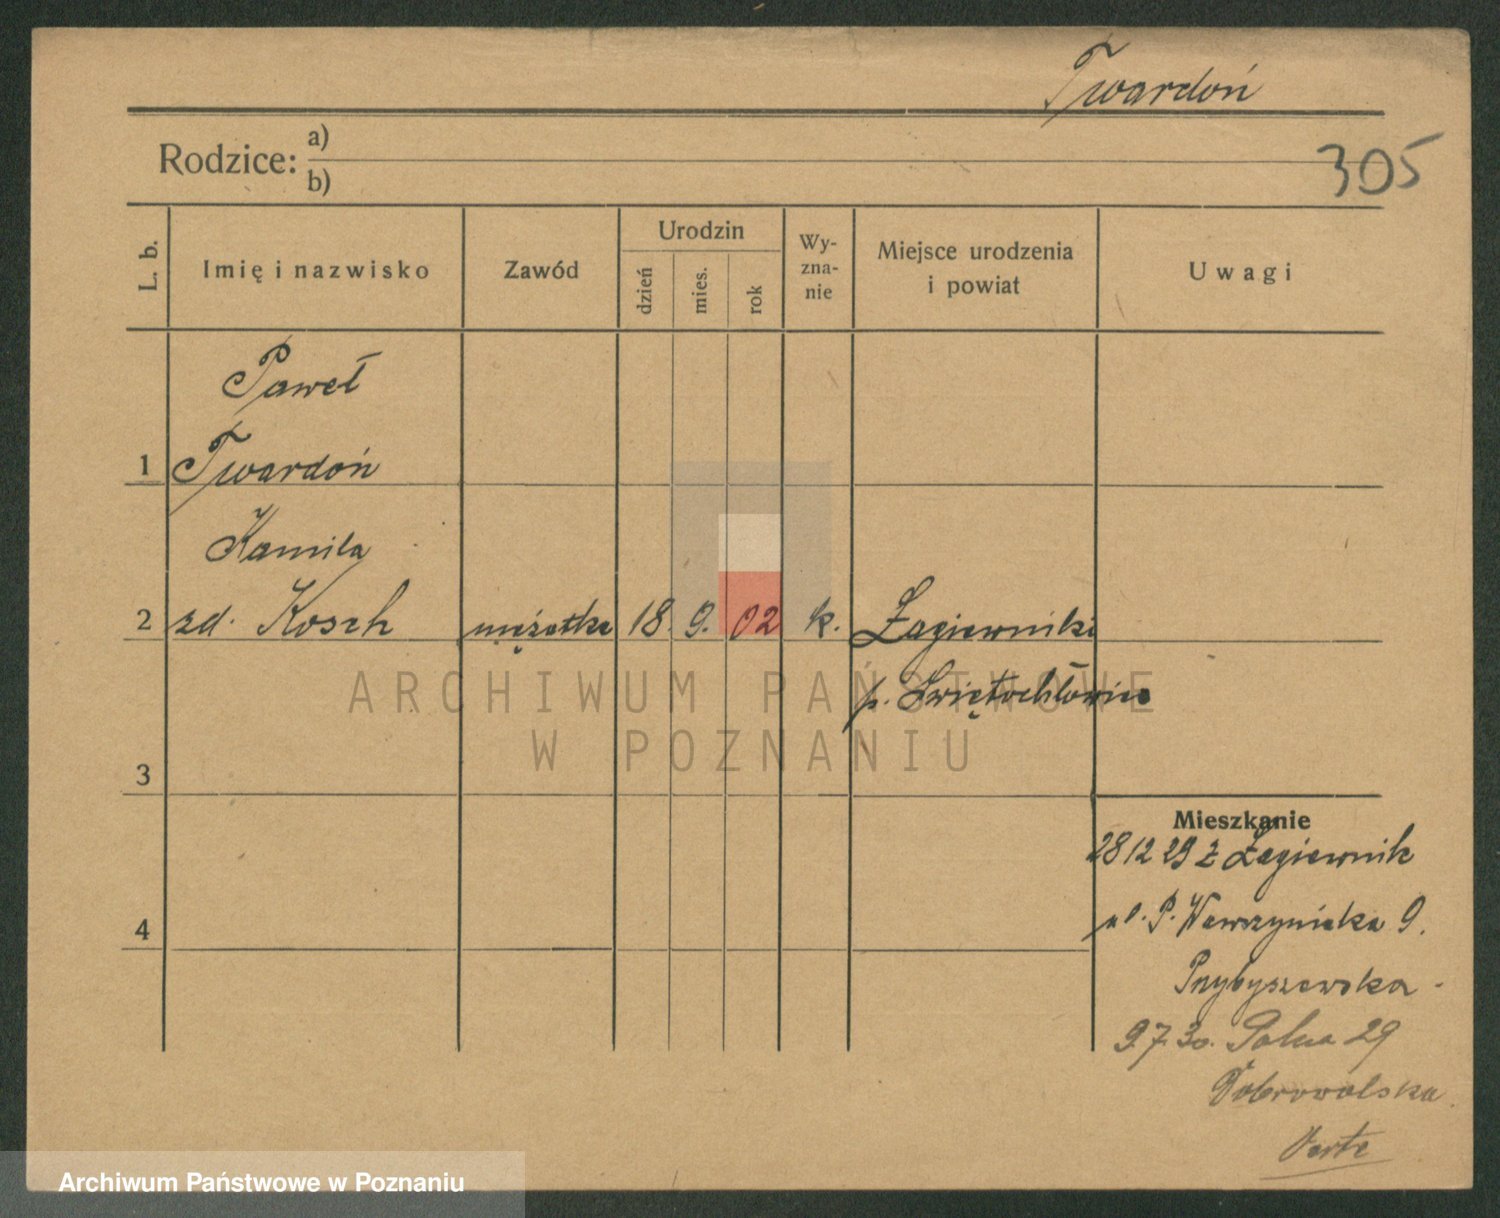 Twardoń
305
Rodzice: a)
b)
L. b.
Imię i nazwisko
Zawód
Urodzin
dzień
mies.
rok
Wy-
zna-
nie
Miejsce urodzenia
i powiat
Uwagi
Paweł
1 Twardoń
Kamila
2 zd. Kosch mężatka 18. 9. 02 k. Łagiewniki
p. Świętochłowice
ARCHIWUM PAŃSTWOWE
W POZNANIU
3
Mieszkanie
28 12 29 z Łagiewnik
4
ul. P. Wawrzyniaka 9.
Przybyszewska
9.7.30. Polna 29
Dobrowolska
Verte
Archiwum Państwowe w Poznaniu